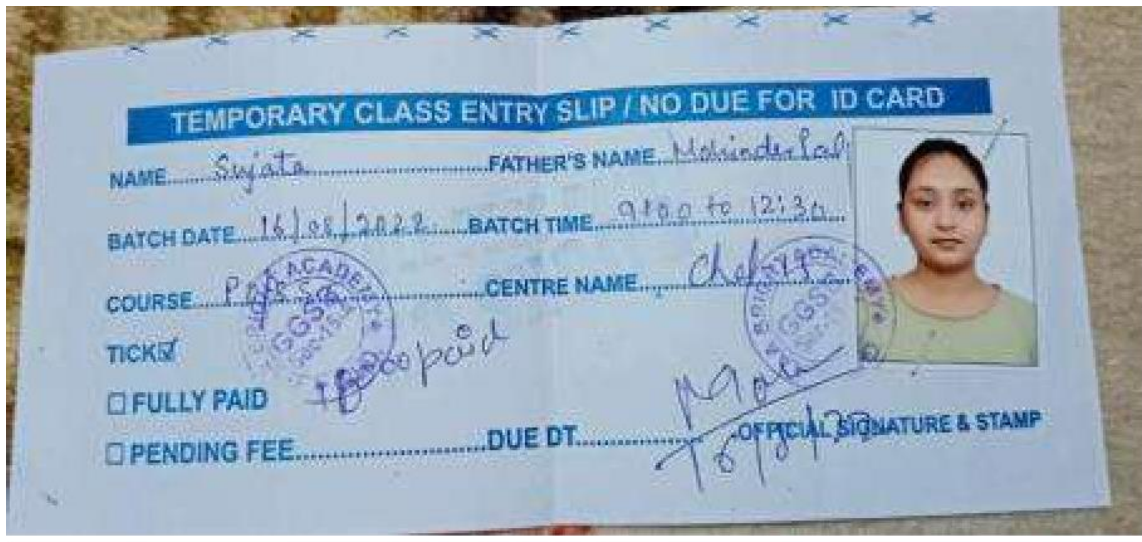 TEMPORARY CLASS ENTRY SLIP / NO DUE FOR ID CARD
NAME...... Sujata ......FATHER'S NAME... Mohinder Pal
BATCH DATE... 16/08/2022 ......BATCH TIME... 9:00 to 12:30
COURSE...... ......CENTRE NAME......
ACADEMY
GGSC
TICK☑
paid
☐ FULLY PAID
☐ PENDING FEE...... DUE DT...... OFFICIAL SIGNATURE & STAMP